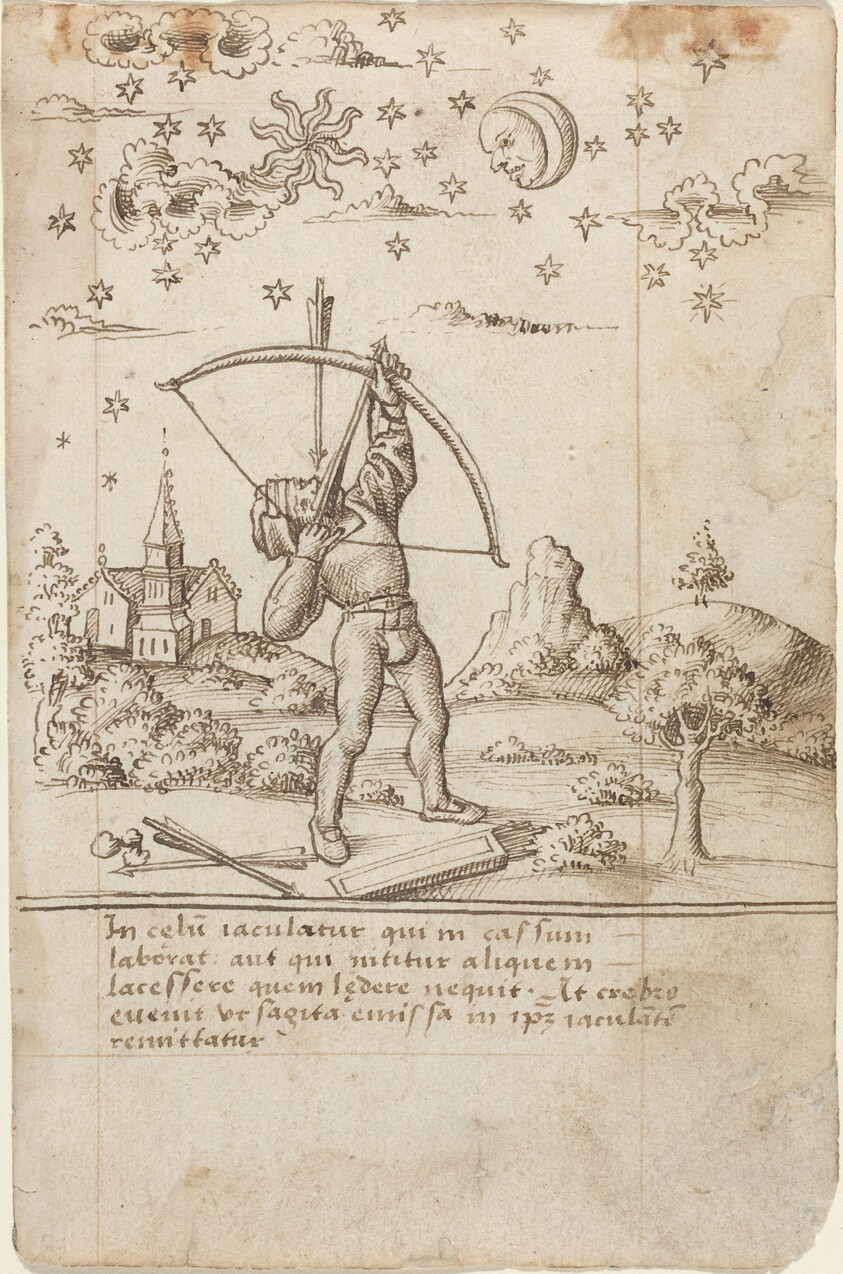 In cęlū iaculatur qui in cassum
laborat: aut qui nititur aliquem
lacessere quem lędere nequit. At crebro
evenit ut sagita emissa in ipꝫ iaculātē
remittatur